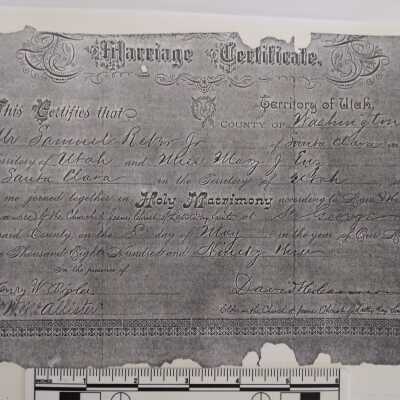 Marriage Certificate.
This Certifies that
Territory of Utah,
County of Washington
Mr Samuel Reber Jr of Santa Clara in
Territory of Utah and Miss Mary J
Santa Clara in the Territory of Utah
me joined together in Holy Matrimony according to
of the Church of Jesus Christ of at St George
said County, on the day of May in the year of Our
Thousand Eight Hundred and Ninety
In the presence of
Henry W.
David H Cannon
Elder in the Church of Jesus Christ of
inches 1 2 3 4 5